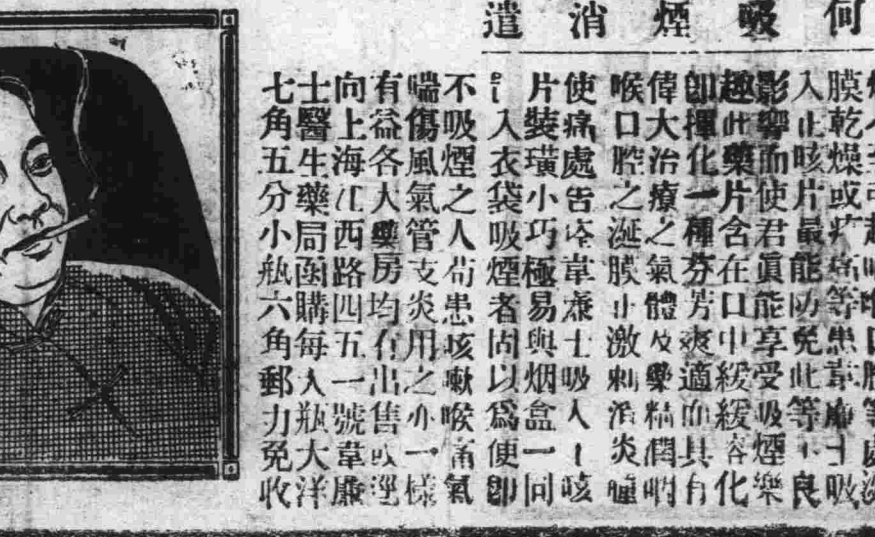 何吸煙消遣
膜乾燥或疼痛等患韋廉士吸
入止咳片最能防免此等不良
影響而使君眞能享受吸煙樂
趣此藥片含在口中緩緩容化
卽揮化一種芬芳爽適而具有
偉大治療之氣體及藥精潤
喉口腔之涎膜止激刺消炎腫
使痛處告痊韋廉士吸入止咳
片裝璜小巧極易與烟盒一同
入衣袋吸煙者固以爲便卽
不吸煙之人苟患咳嗽喉痛氣
喘傷風氣管支炎用之亦一樣
有益各大藥房均有出售或逕
向上海江西路四五一號韋廉
士醫生藥局函購每大瓶大洋
七角五分小瓶六角郵力免收